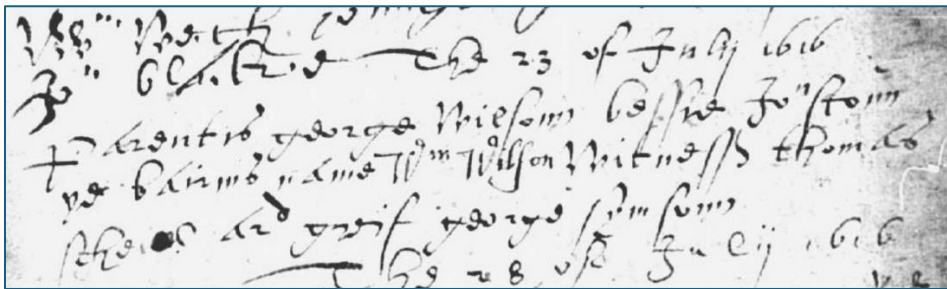 Wm
Jon blakie The 23 of July 1616
Parentis george Wilsoun bessie Jonstoun
ye bairns name Wm Wilson Witness thomas
Ard greif george symsoun
The 28 of July 1616